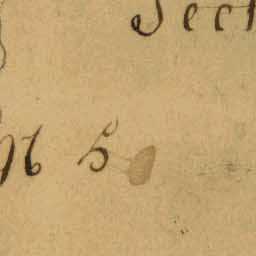 Sect
N 5